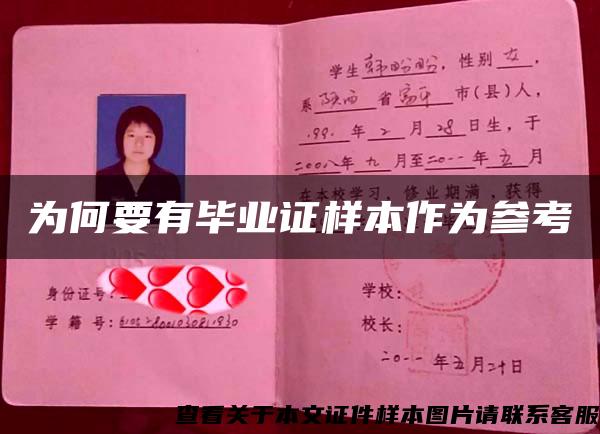 学生韩盼盼，性别女，
系陕西省富平市(县)人，
1991年2月28日生，于
二〇〇八年九月至二〇一一年五月
在本校学习，修业期满，获得
为何要有毕业证样本作为参考
身份证号：
学籍号：
学校：
校长：
二〇一一年五月二十日
查看关于本文证件样本图片请联系客服